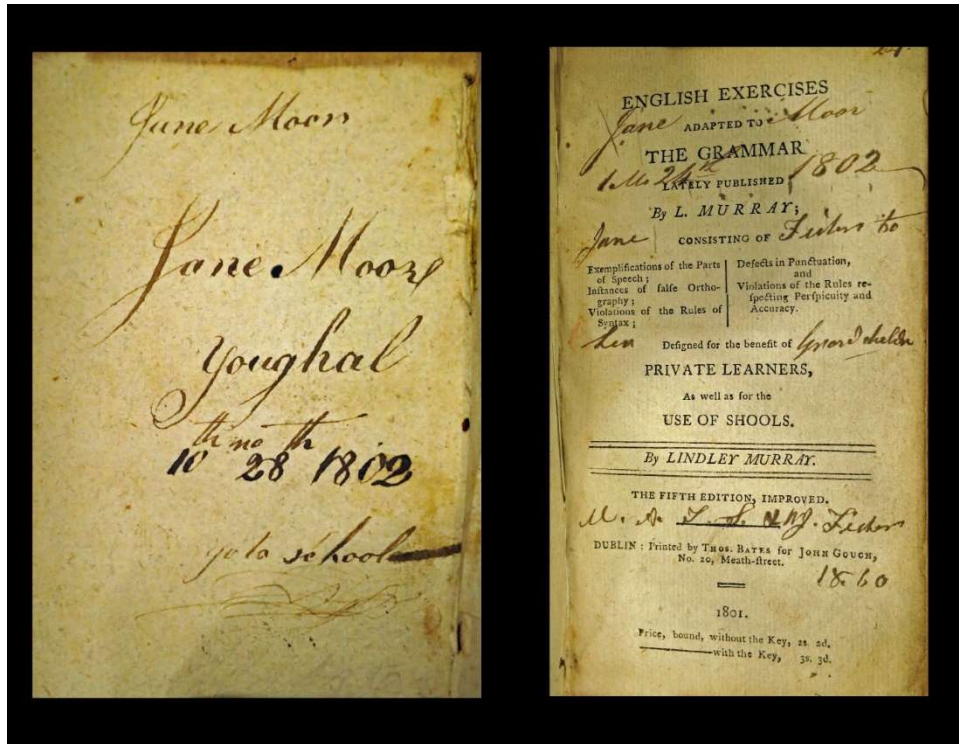 Jane Moor
Jane Moore
Youghal
10th mo 28th 1802
go to school
ENGLISH EXERCISES
Jane ADAPTED TO Moor
THE GRAMMAR
1 Mo 24th 1802
LATELY PUBLISHED
By L. MURRAY;
Jane CONSISTING OF Fisher to
Exemplifications of the Parts
of Speech;
Inſtances of falſe Ortho-
graphy;
Violations of the Rules of
Syntax;
Defects in Punctuation,
and
Violations of the Rules re-
ſpecting Perſpicuity and
Accuracy.
her Deſigned for the benefit of Grand children
PRIVATE LEARNERS,
As well as for the
USE OF SHOOLS.
By LINDLEY MURRAY.
THE FIFTH EDITION, IMPROVED.
M. A. T. S. & J. Fisher
DUBLIN: Printed by THOS. BATES for JOHN GOUGH,
No. 20, Meath-ſtreet.
1860
1801.
Price, bound, without the Key, 2s. 2d.
with the Key, 3s. 3d.